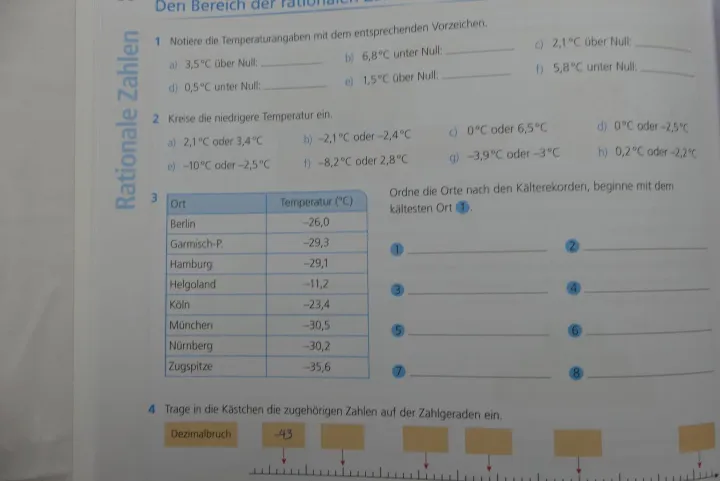 Den Bereich der rationalen
Rationale Zahlen
1 Notiere die Temperaturangaben mit dem entsprechenden Vorzeichen.
a) 3,5°C über Null: b) 6,8°C unter Null: c) 2,1°C über Null:
d) 0,5°C unter Null: e) 1,5°C über Null: f) 5,8°C unter Null:
2 Kreise die niedrigere Temperatur ein.
a) 2,1°C oder 3,4°C b) –2,1°C oder –2,4°C c) 0°C oder 6,5°C d) 0°C oder –2,5°C
e) –10°C oder –2,5°C f) –8,2°C oder 2,8°C g) –3,9°C oder –3°C h) 0,2°C oder –2,2°C
3
Ort Temperatur (°C)
Berlin –26,0
Garmisch-P. –29,3
Hamburg –29,1
Helgoland –11,2
Köln –23,4
München –30,5
Nürnberg –30,2
Zugspitze –35,6
Ordne die Orte nach den Kälterekorden, beginne mit dem
kältesten Ort 1.
1 2
3 4
5 6
7 8
4 Trage in die Kästchen die zugehörigen Zahlen auf der Zahlgeraden ein.
Dezimalbruch –43